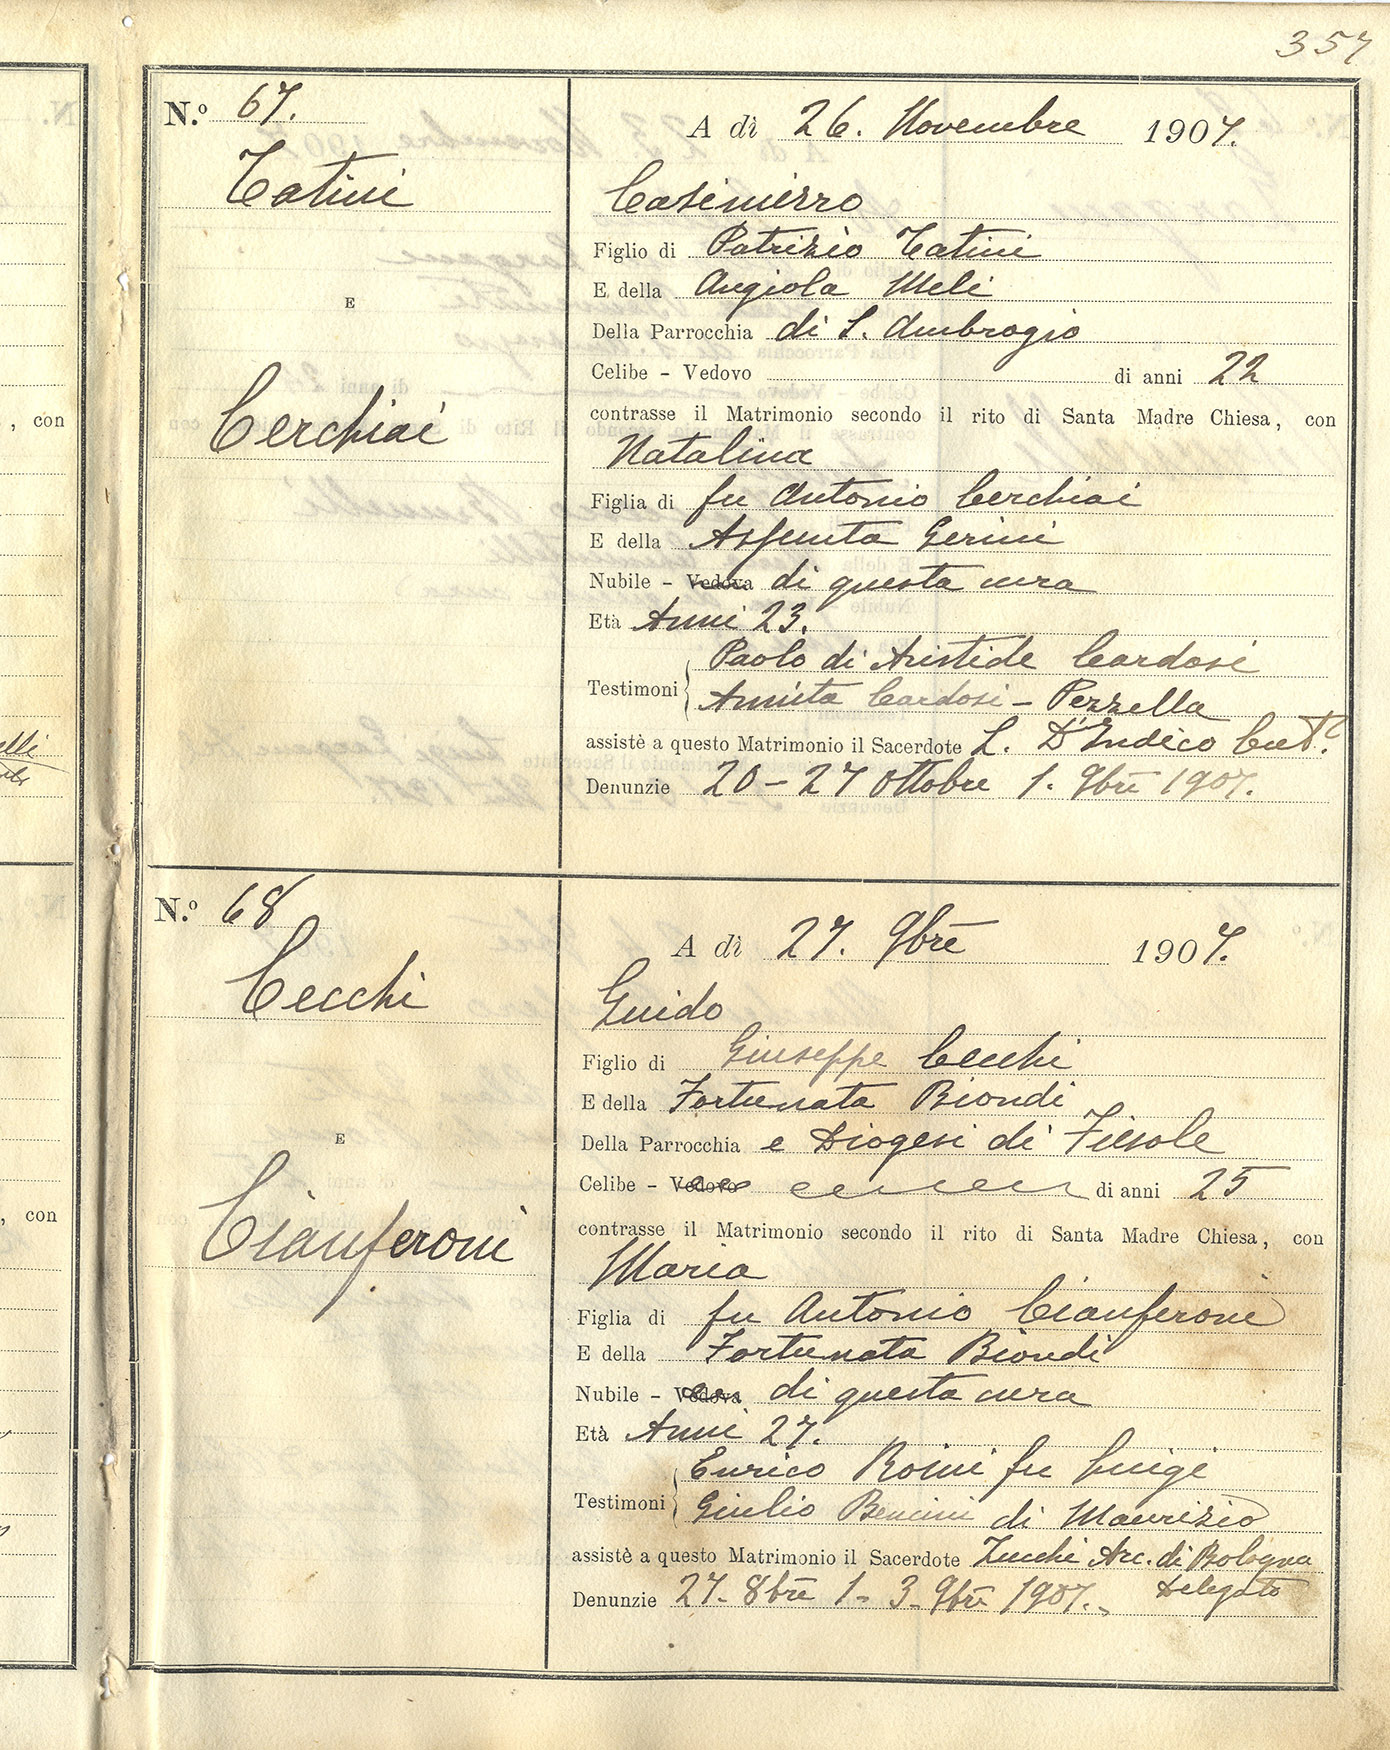 357
N.º 67.
Tatini
E
Cerchiai
A dì 26. Novembre 1907.
Casimirro
Figlio di Patrizio Tatini
E della Angiola Meli
Della Parrocchia di S. Ambrogio
Celibe - Vedovo di anni 22
contrasse il Matrimonio secondo il rito di Santa Madre Chiesa, con
Natalina
Figlia di fu Antonio Cerchiai
E della Assunta Gerini
Nubile - Vedova di questa cura
Età Anni 23.
Testimoni Paolo di Aristide Cardosi
Annita Cardosi - Pezzella
assistè a questo Matrimonio il Sacerdote L. D'Indico
Denunzie 20 - 27 Ottobre 1. 9bre 1907.
N.º 68
Cecchi
E
Cianferoni
A dì 27. 9bre 1907.
Guido
Figlio di Giuseppe Cecchi
E della Fortunata Biondi
Della Parrocchia e Diogesi di Fiesole
Celibe - Vedovo di anni 25
contrasse il Matrimonio secondo il rito di Santa Madre Chiesa, con
Maria
Figlia di fu Antonio Cianferoni
E della Fortunata Biondi
Nubile - Vedova di questa cura
Età Anni 27.
Testimoni Enrico Roini fu Luigi
Giulio Bencini di Maurizio
assistè a questo Matrimonio il Sacerdote Zucchi Arc. di Bologna
Delegato
Denunzie 27. 8bre 1 - 3 - 9bre 1907.
, con
, con